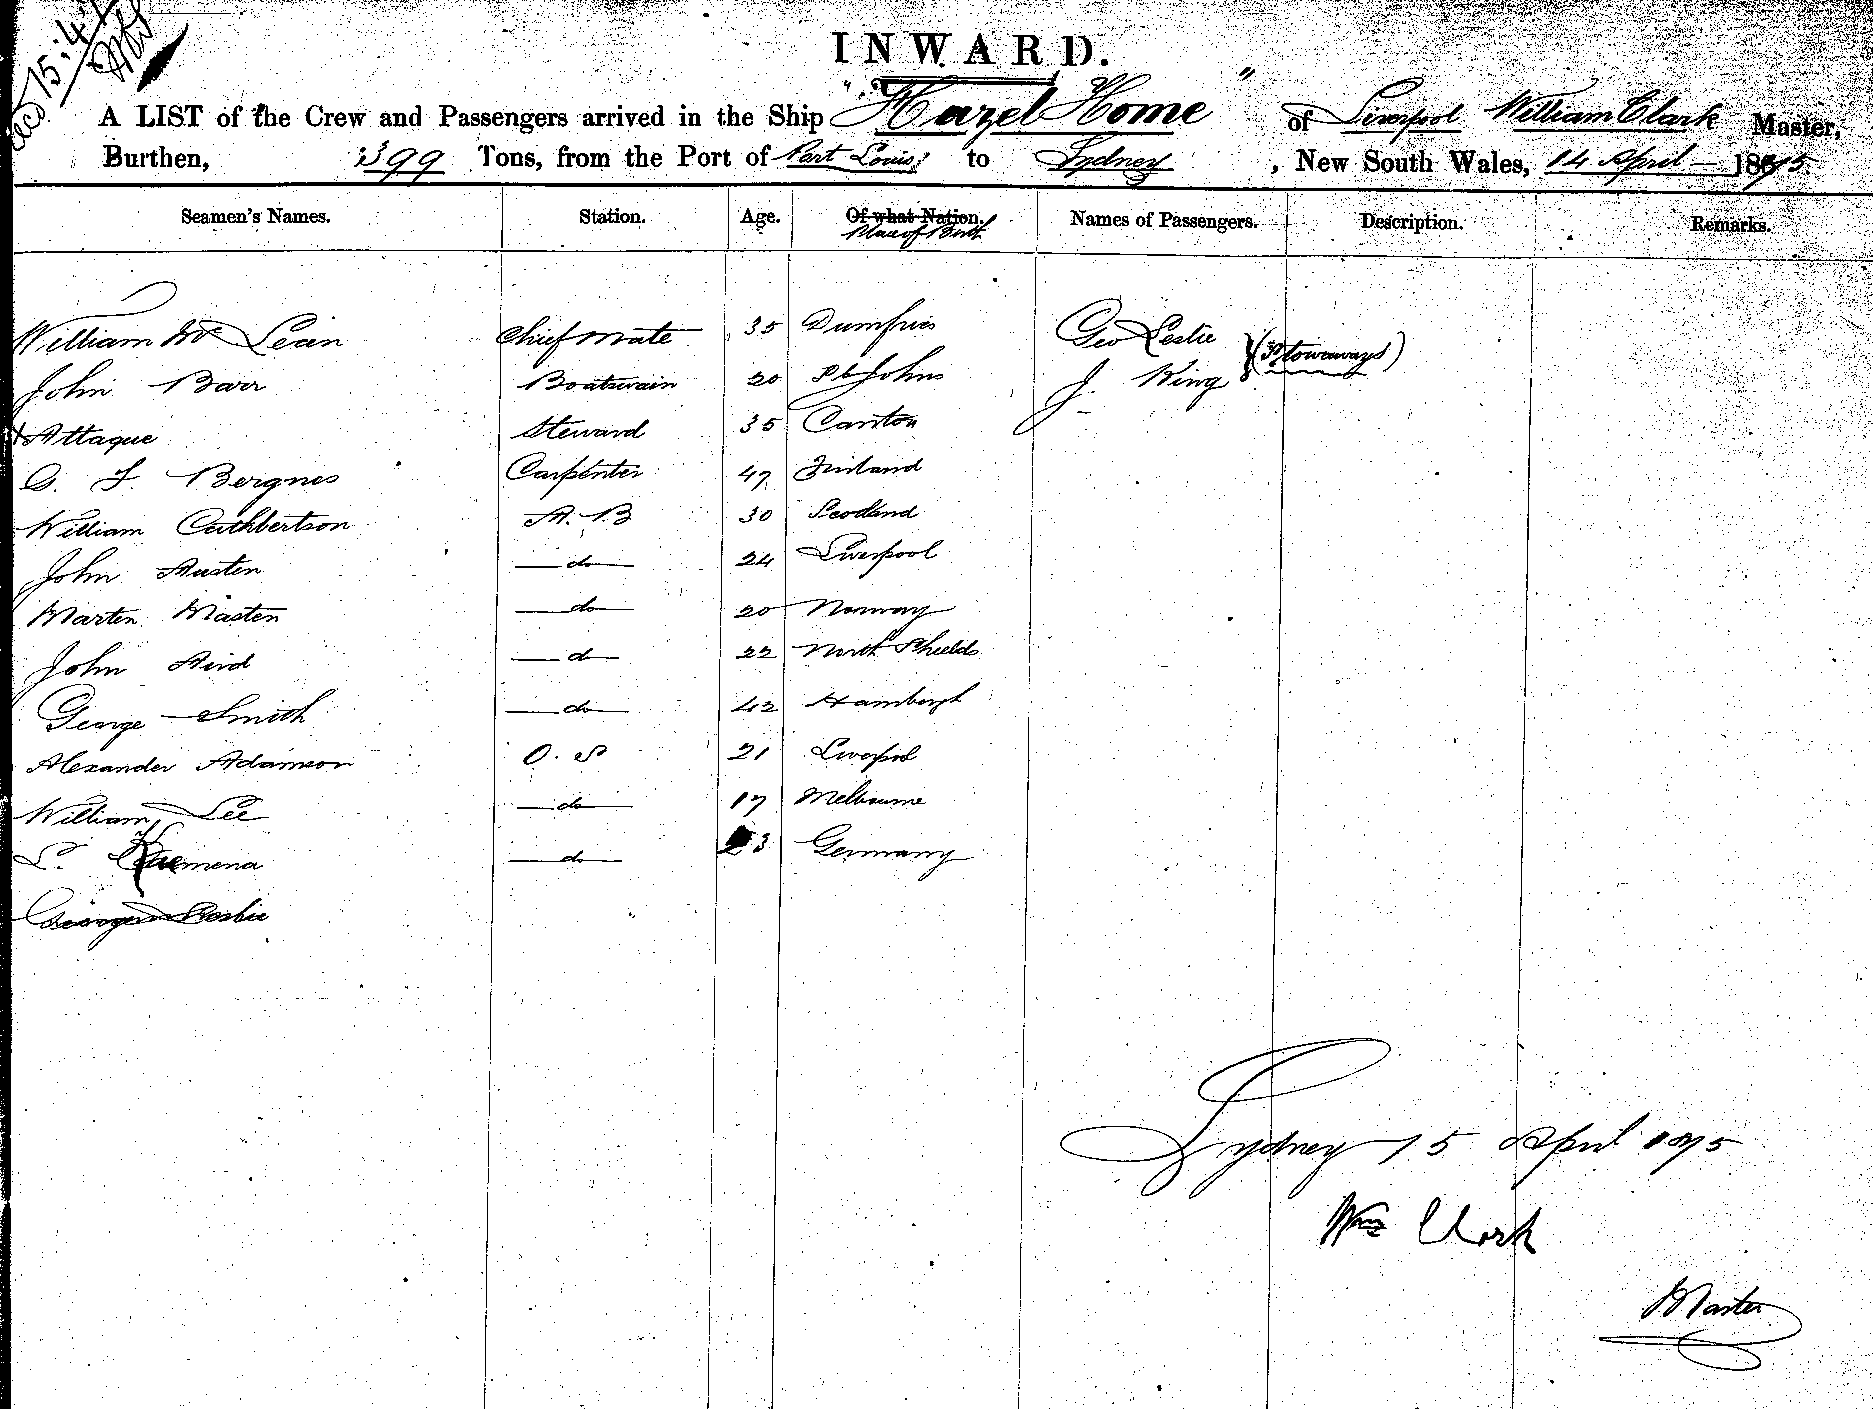 15.4
INWARD.
A LIST of the Crew and Passengers arrived in the Ship "Hazel Home" of Liverpool William Clark Master,
Burthen, 399 Tons, from the Port of Port Louis to Sydney, New South Wales, 14 April 1875
Seamen's Names. Station. Age. Of what Nation. Place of Birth Names of Passengers. Description. Remarks.
William Mc Lean Chief Mate 35 Dumfries Geo Leslie (Stowaways)
John Barr Boatswain 20 St Johns J. King
Attaque Steward 35 Canton
F. Bergnes Carpenter 47 Finland
William Cuthbertson A.B 30 Scotland
John Austen do 24 Liverpool
Marten Masten do 20 Norway
John Aird do 22 North Shields
George Smith do 42 Hamburgh
Alexander Adamson O.S 21 Liverpool
William Lee do 17 Melbourne
do 23 Germany
George Leslie
Sydney 15 April 1875
Wm Clark
Master